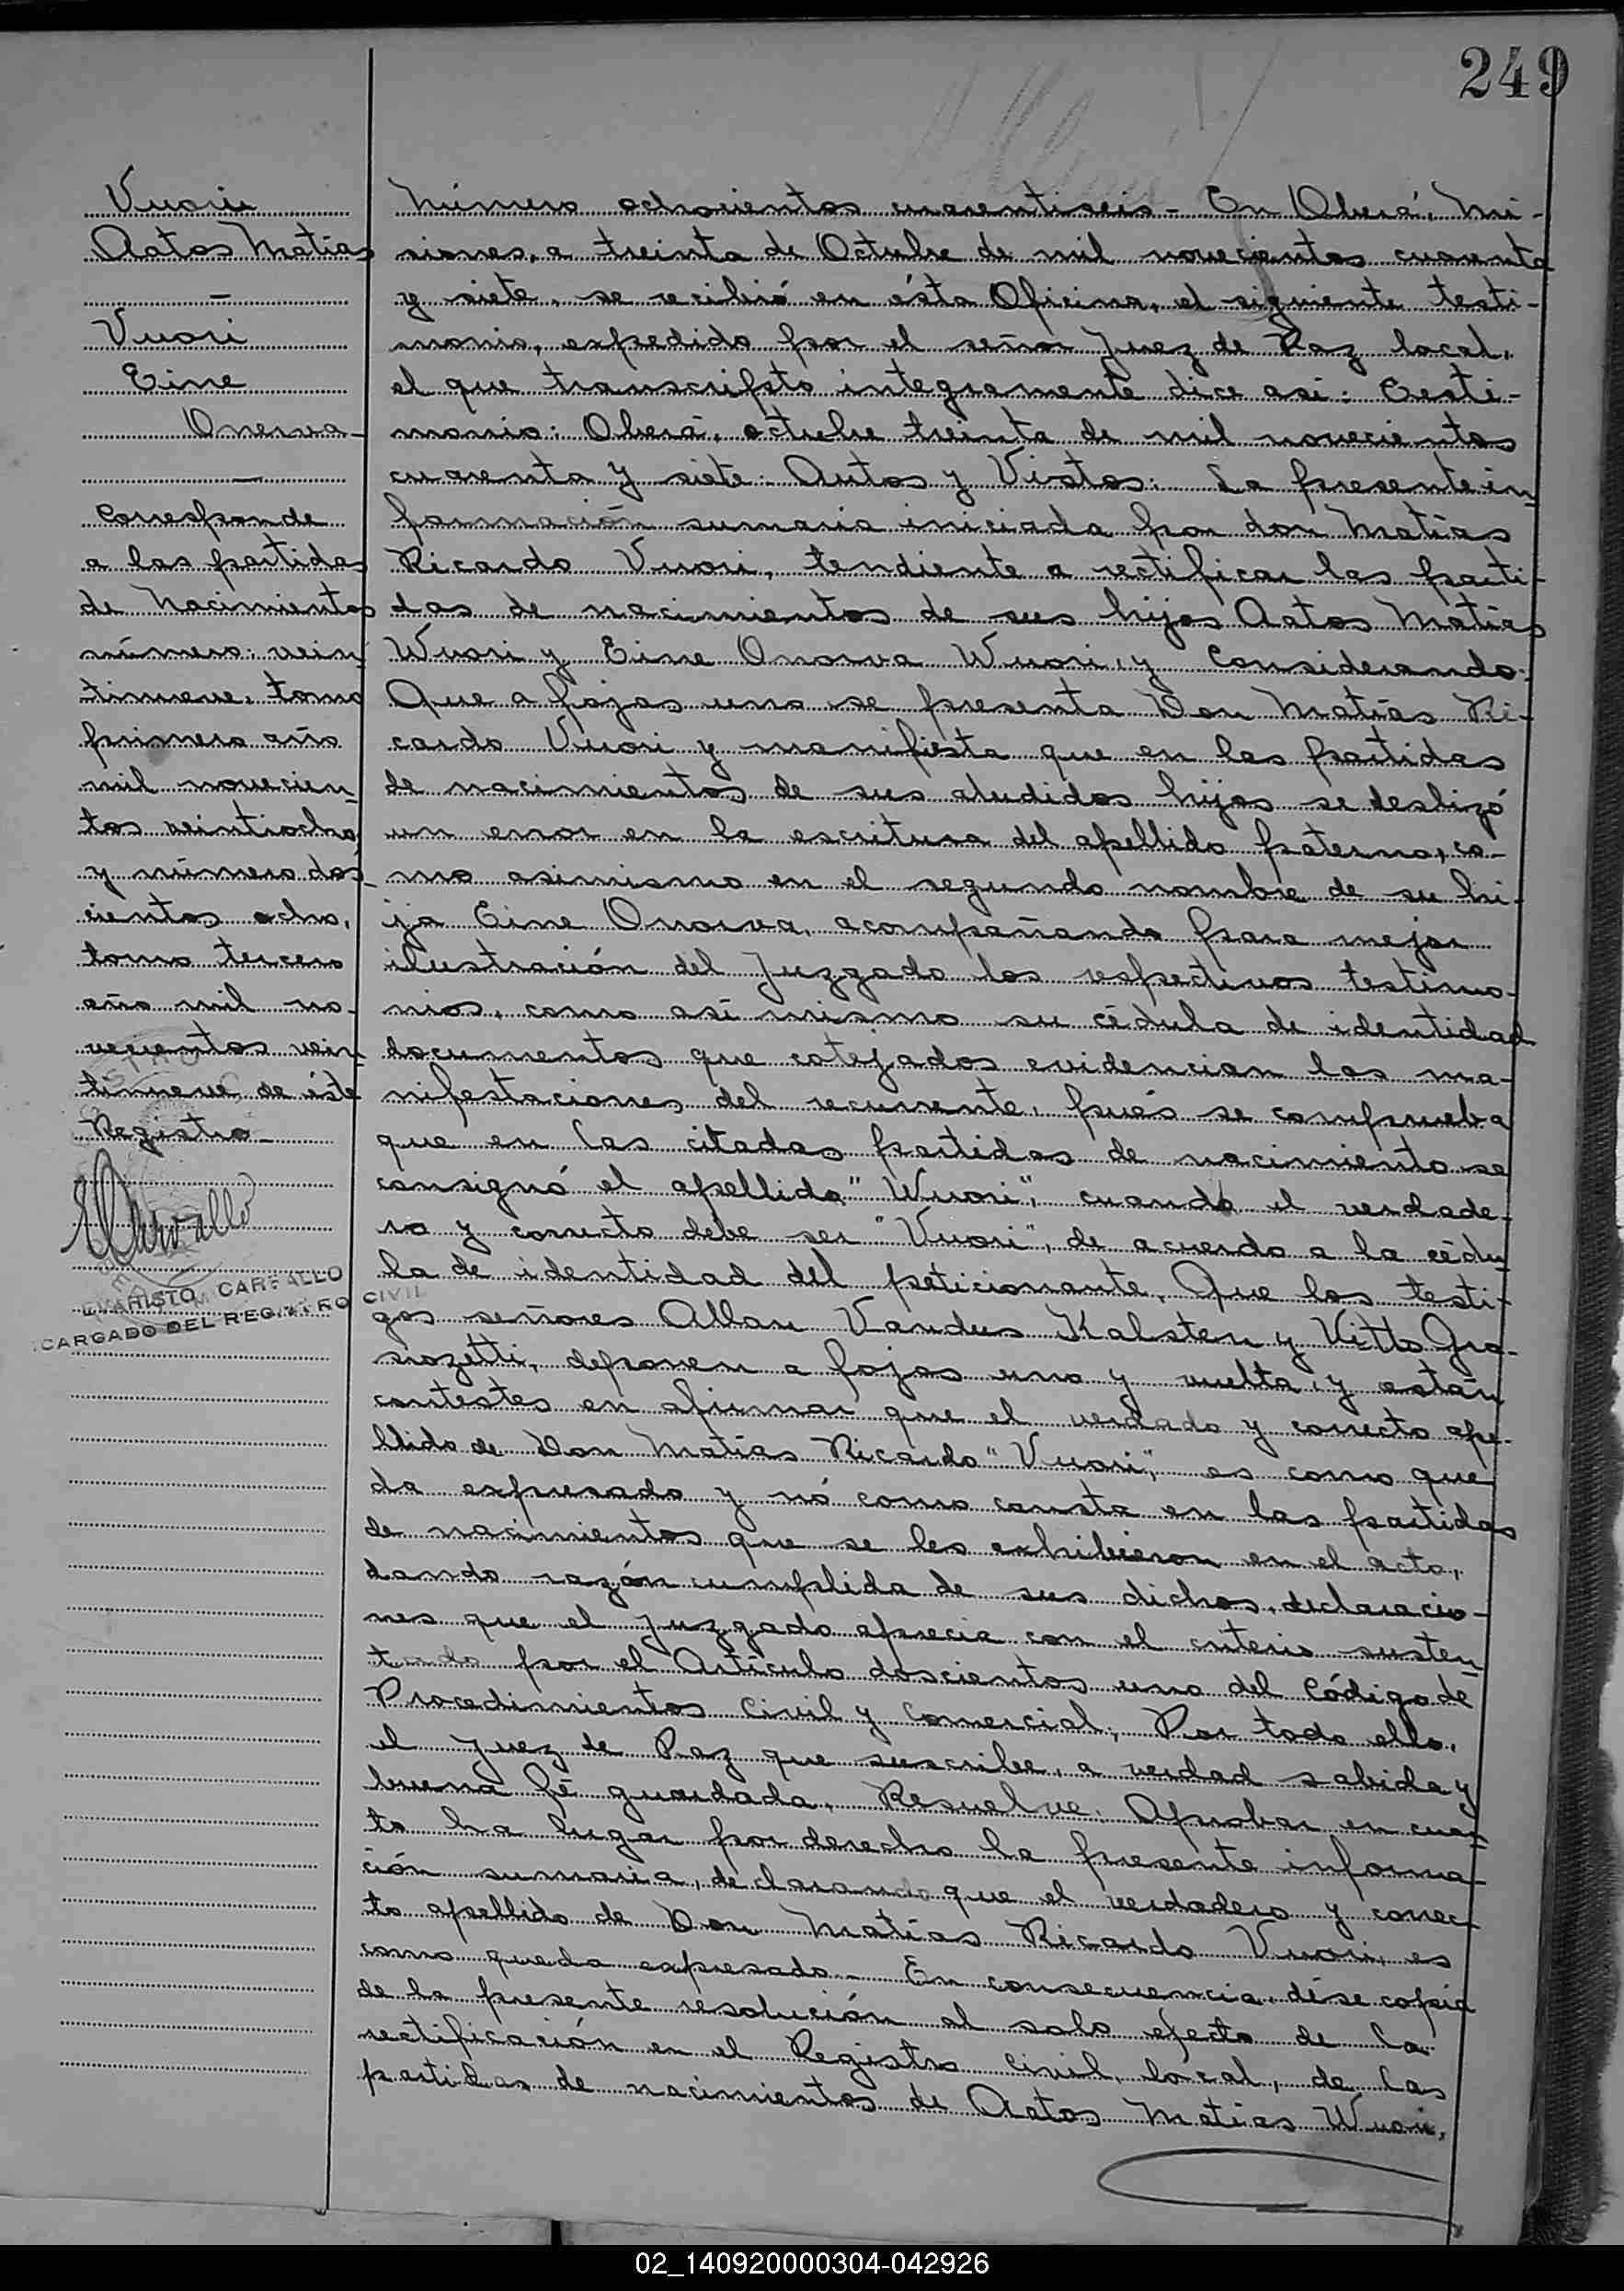 249
Vuori
Aatos Matías
—
Vuori
Eine
Onerva-
—
Corresponde
a las partidas
de Nacimientos
número: vein
tinueve, tomo
primero año
mil novecien-
tos veintiocho
y número dos-
cientos ocho,
tomo tercero
año mil no-
vecientos vein-
tinueve de éste
Registro-
EVARISTO CARVALLO
CARGADO DEL REGISTRO CIVIL
Número ochocientos cuarentiseis- En Oberá, Mi-
siones, a treinta de Octubre de mil novecientos cuarenta
y siete, se recibió en ésta Oficina, el siguiente testi-
monio, expedido por el señor Juez de Paz local,
el que transcripto integramente dice así: Testi-
monio: Oberá, octubre treinta de mil novecientos
cuarenta y siete: Autos y Vistos: La presente in
formación sumaria iniciada por don Matías
Ricardo Vuori, tendiente a rectificar las parti-
das de nacimientos de sus hijos Aatos Matías
Wuori y Eine Onorva Wuori, y Considerando:
Que a fojas uno se presenta Don Matías Ri-
cardo Vuori y manifiesta que en las partidas
de nacimientos de sus aludidos hijos se deslizó
un error en la escritura del apellido paterno, co-
mo asimismo en el segundo nombre de su hi-
ja Eine Onorva, acompañando para mejor
ilustración del Juzgado los respectivos testimo-
nios, como así mismo su cédula de identidad
documentos que cotejados evidencian las ma-
nifestaciones del recurrente, pués se comprueba
que en las citadas partidas de nacimiento se
consignó el apellido "Wuori", cuando el verdade-
ro y correcto debe ser "Vuori", de acuerdo a la cédu-
la de identidad del peticionante. Que los testi-
gos señores Allan Vandus Kalsten y Vitto Gra-
siozetti, deponen a fojas uno y vuelta, y están
contestes en afirmar que el verdado y correcto ape-
llido de Don Matías Ricardo "Vuori", es como que
da expresado y nó como consta en las partidas
de nacimientos que se les exhibieron en el acto,
dando razón cumplida de sus dichos, declaracio-
nes que el Juzgado aprecia con el criterio susten-
tado por el Artículo doscientos uno del Código de
Procedimientos Civil y Comercial, Por todo ello,
el Juez de Paz que suscribe, a verdad sabida y
buena fé guardada, Resuelve: Aprobar en cuan-
to ha lugar por derecho la presente informa-
ción sumaria, declarando que el verdadero y correc-
to apellido de Don Matías Ricardo Vuori, es
como queda expresado.- En consecuencia, dése copia
de la presente resolución al solo efecto de la
rectificación en el Registro Civil, local, de las
partidas de nacimientos de Aatos Matías Wuori,
02_140920000304-042926